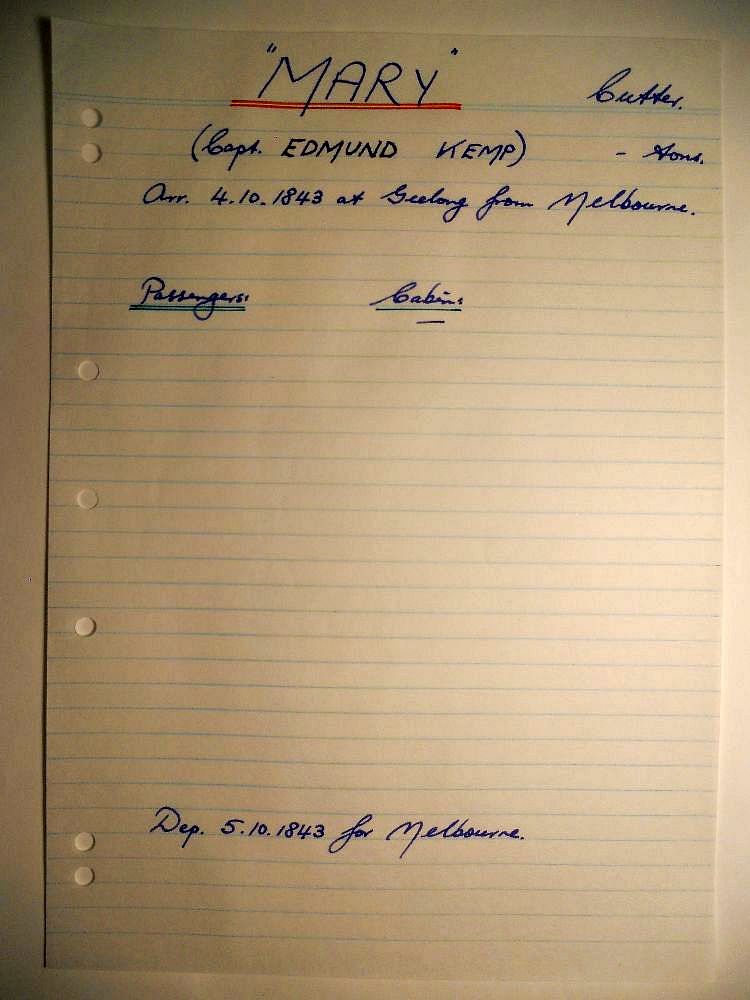 "MARY" Cutter.
(Capt. EDMUND KEMP) - tons.
Arr. 4.10.1843 at Geelong from Melbourne.
Passengers: Cabin:
—
Dep. 5.10.1843 for Melbourne.